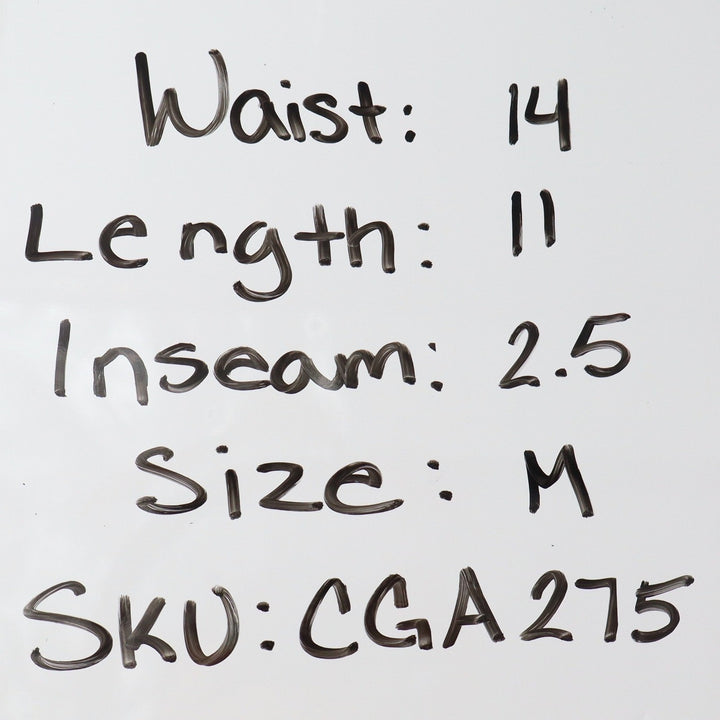 Waist: 14
Length: 11
Inseam: 2.5
Size: M
SKU: CGA275